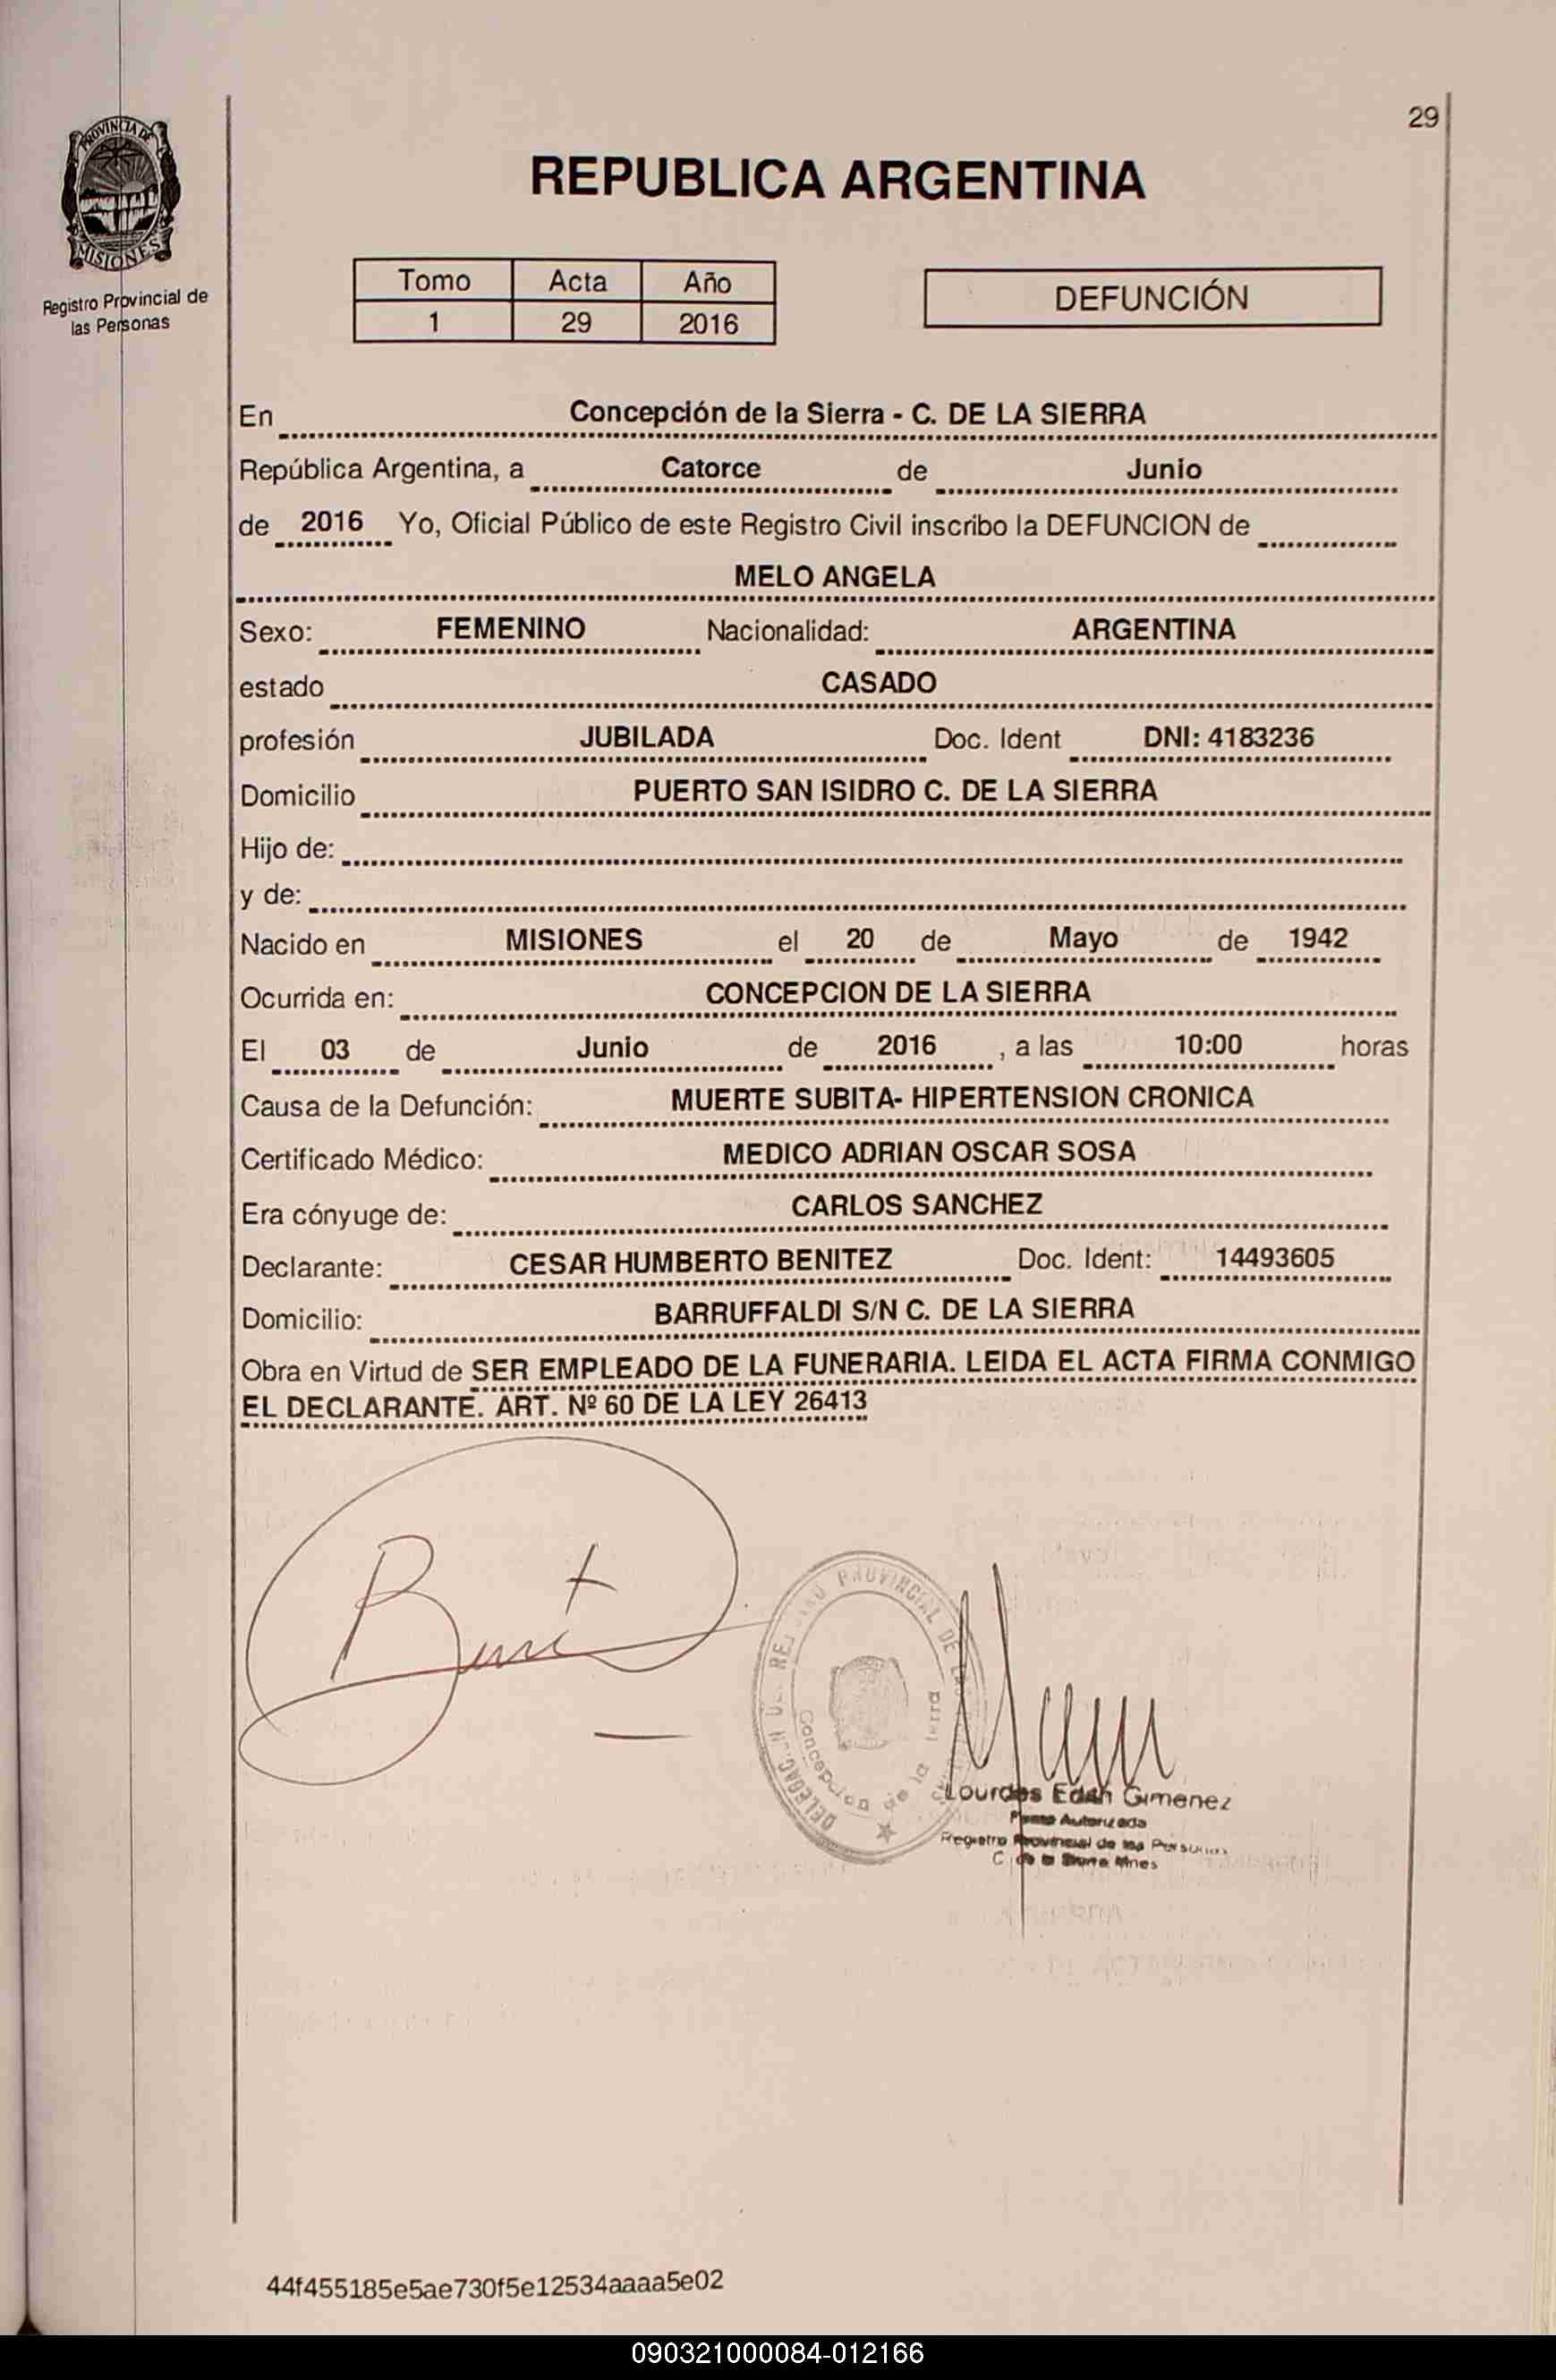 29
PROVINCIA DE
MISIONES
Registro Provincial de
las Personas
REPUBLICA ARGENTINA
Tomo Acta Año
1 29 2016
DEFUNCIÓN
En Concepción de la Sierra - C. DE LA SIERRA
República Argentina, a Catorce de Junio
de 2016 Yo, Oficial Público de este Registro Civil inscribo la DEFUNCION de
MELO ANGELA
Sexo: FEMENINO Nacionalidad: ARGENTINA
estado CASADO
profesión JUBILADA Doc. Ident DNI: 4183236
Domicilio PUERTO SAN ISIDRO C. DE LA SIERRA
Hijo de:
y de:
Nacido en MISIONES el 20 de Mayo de 1942
Ocurrida en: CONCEPCION DE LA SIERRA
El 03 de Junio de 2016 , a las 10:00 horas
Causa de la Defunción: MUERTE SUBITA- HIPERTENSION CRONICA
Certificado Médico: MEDICO ADRIAN OSCAR SOSA
Era cónyuge de: CARLOS SANCHEZ
Declarante: CESAR HUMBERTO BENITEZ Doc. Ident: 14493605
Domicilio: BARRUFFALDI S/N C. DE LA SIERRA
Obra en Virtud de SER EMPLEADO DE LA FUNERARIA. LEIDA EL ACTA FIRMA CONMIGO
EL DECLARANTE. ART. Nº 60 DE LA LEY 26413
PROVINCIAL DE
Concepcion de la
Lourdes Edith Gimenez
Autorizada
Registro Provincial de las Personas
C. de la Sierra Mnes
44f455185e5ae730f5e12534aaaa5e02
090321000084-012166